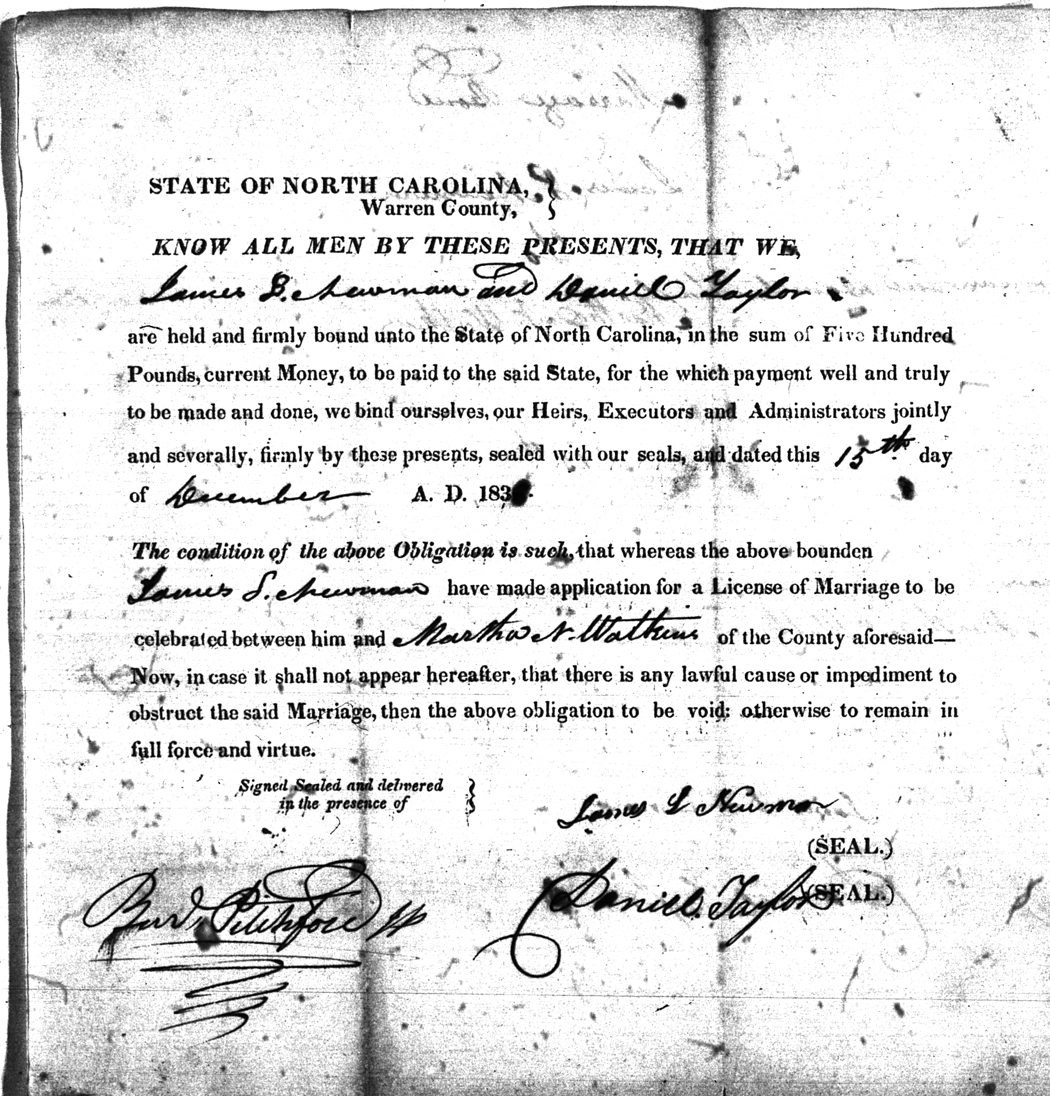 STATE OF NORTH CAROLINA,
Warren County,
KNOW ALL MEN BY THESE PRESENTS, THAT WE,
James Newman and Daniel Taylor
are held and firmly bound unto the State of North Carolina, in the sum of Five Hundred
Pounds, current Money, to be paid to the said State, for the which payment well and truly
to be made and done, we bind ourselves, our Heirs, Executors and Administrators jointly
and severally, firmly by these presents, sealed with our seals, and dated this 15th day
of December A. D. 183
The condition of the above Obligation is such, that whereas the above bounden
James S. Newman have made application for a License of Marriage to be
celebrated between him and Martha N. Watkins of the County aforesaid—
Now, in case it shall not appear hereafter, that there is any lawful cause or impediment to
obstruct the said Marriage, then the above obligation to be void: otherwise to remain in
full force and virtue.
Signed Sealed and delivered
in the presence of
James Newman
(SEAL.)
Daniel Taylor (SEAL.)
Pitchford